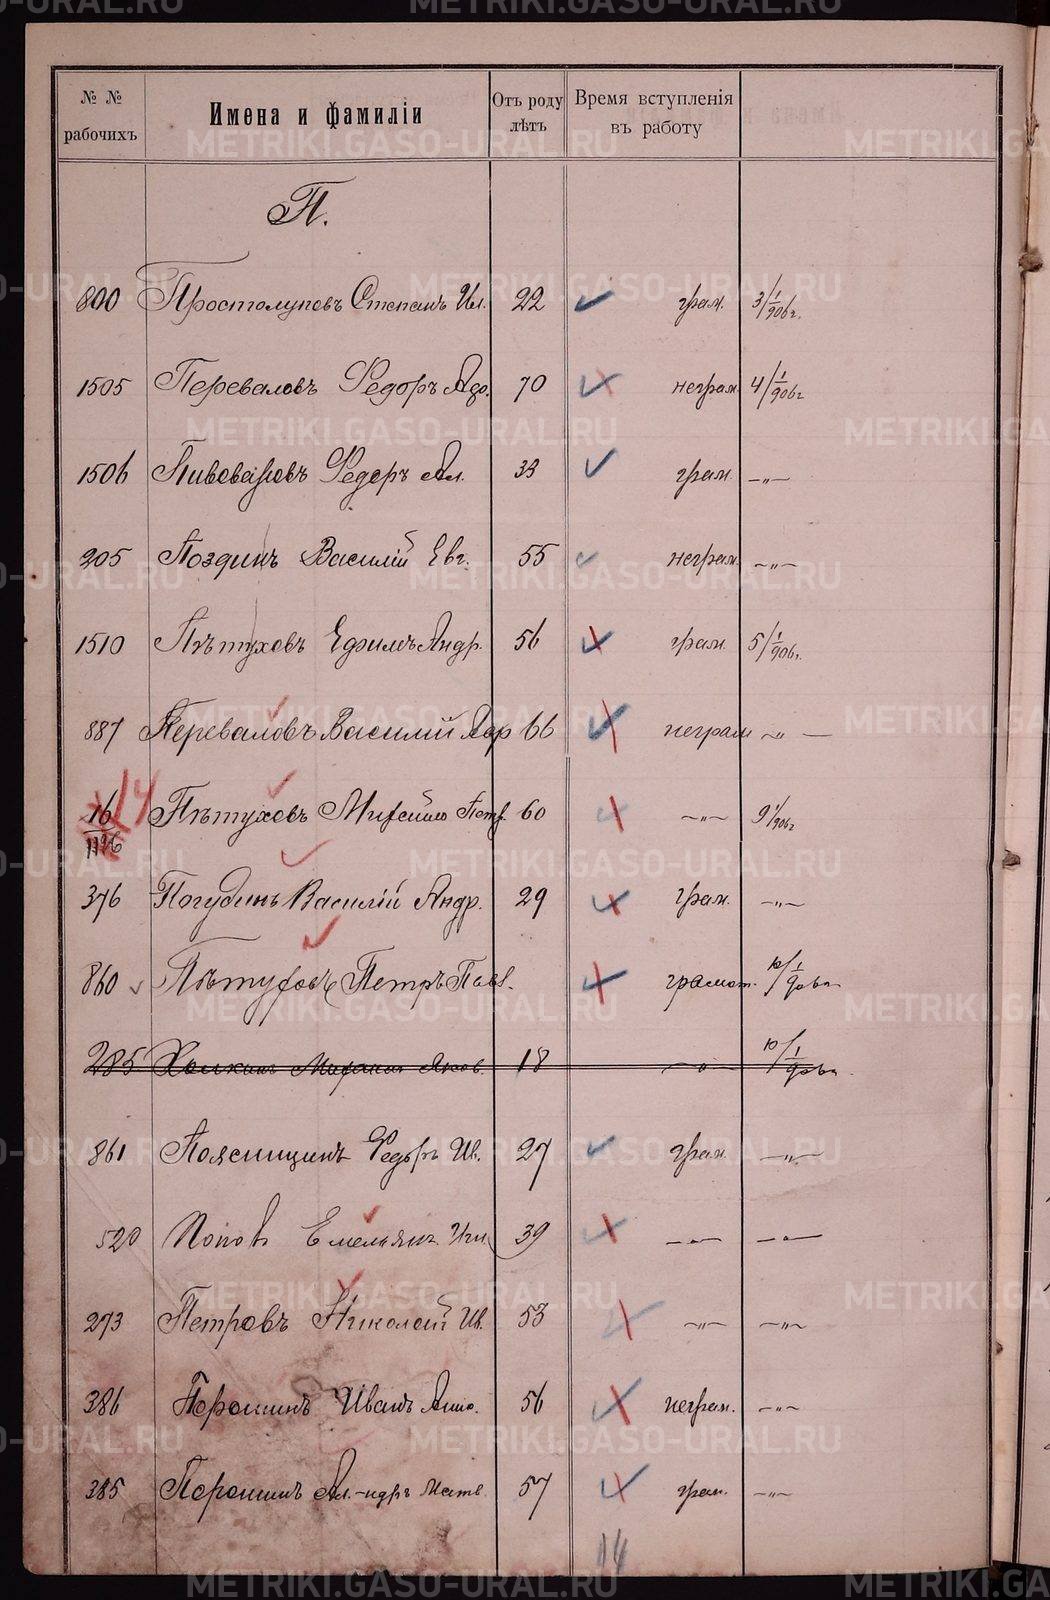 № № рабочихъ
Имена и фамиліи
Отъ роду лѣтъ
Время вступленія въ работу
П.
800 Простолуповъ Степанъ Ил. 22 грам. 3/1/906г.
1505 Переваловъ Федоръ 70 неграм. 4/1/906г
1506 Пивоваровъ Федоръ Ал. 33 грам. —"—
205 Поздинъ Василій Евг. 55 неграм. —"—
1510 Пѣтуховъ Ефимъ Андр. 56 грам. 5/1/906г.
887 Переваловъ Василій 66 неграм —"—
16 14 1196 Пѣтуховъ Петр. 60 —"— 9/1/906г
376 Погудинъ Василій Андр. 29 грам. —"—
860 Пѣтуховъ Петръ Павл. грамот. 10/1/906г.
285 Яков. 18 —"— 10/1/906г.
861 Поясницинъ Федоръ Ив. 27 грам. —"—
520 Поповъ Емельянъ 39 —"— —"—
273 Петровъ Николай Ив. 53 —"— —"—
386 Порошинъ Иванъ 56 неграм. —"—
385 Порошинъ Ал-ндръ Матв. 57 грам. —"—
14
METRIKI.GASO-URAL.RU